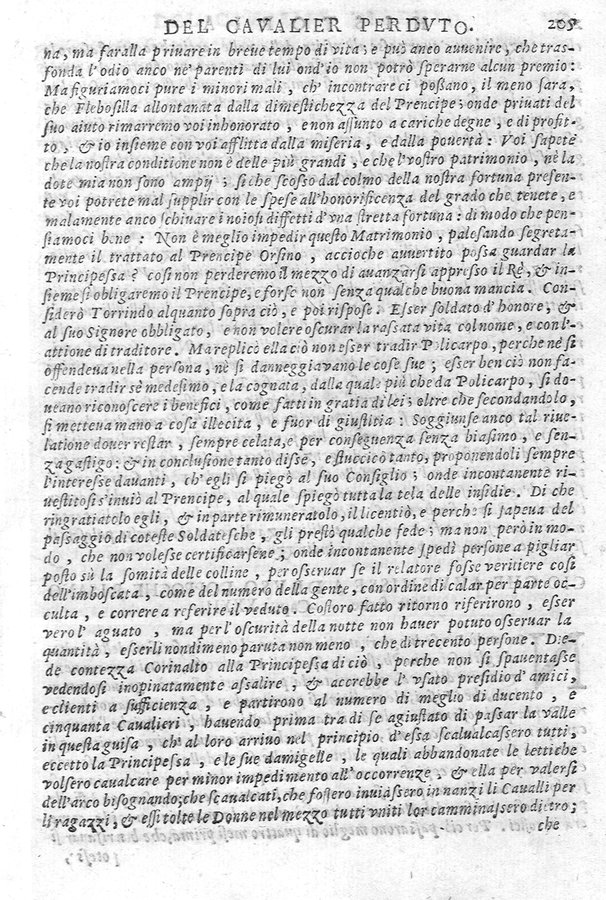 DEL CAVALIER PERDVTO. 205
na, ma faralla priuare in breue tempo di vita; e può anco auuenire, che tras-
fonda l'odio anco ne' parenti di lui ond'io non potrò sperarne alcun premio:
Ma figuriamoci pure i minori mali, ch' incontrare ci poßano, il meno sara,
che Flebosilla allontanata dalla dimestichezza del Prencipe; onde priuati del
suo aiuto rimarremo voi inhonorato, e non assunto a cariche degne, e di profit-
to, & io insieme con voi afflitta dalla miseria, e dalla pouertà: Voi sapete
che la nostra conditione non è delle più grandi, e che l'vostro patrimonio, nè la
dote mia non sono ampij; si che scosso dal colmo della nostra fortuna presen-
te voi potrete mal supplir con le spese all'honorificenza del grado che tenete, e
malamente anco schiuare i noiosi diffetti d'vna stretta fortuna: di modo che pen-
siamoci bene: Non è meglio impedir questo Matrimonio, palesando segreta-
mente il trattato al Prencipe Orsino, accioche auuertito possa guardar la
Principessa? così non perderemo il mezzo di auanzarsi appresso il Rè, & in-
sieme si obligaremo il Prencipe, e forse non senza qualche buona mancia. Con-
siderò Torrindo alquanto sopra ciò, e poi rispose. Esser soldato d'honore, &
al suo Signore obbligato, e non volere oscurar la passata vita col nome, e con l'-
attione di traditore. Ma replicò ella ciò non esser tradir Policarpo, perche nè si
offendeua nella persona, nè si danneggiauano le cose sue; esser ben ciò non fa-
cende tradir sè medesimo, e la cognata, dalla quale più che da Policarpo, si do-
ueano riconoscere i benefici, come fatti in gratia di lei; oltre che secondandolo,
si metteua mano a cosa illecita, e fuor di giustitia: Soggiunse anco tal riue-
latione douer restar, sempre celata, e per conseguenza senza biasimo, e sen-
za gastigo: & in conclusione tanto disse, e stuccicò tanto, proponendoli sempre
l'interesse dauanti, ch'egli si piegò al suo Consiglio; onde incontanente ri-
uestitosi s'inuiò al Prencipe, al quale spiegò tutta la tela delle insidie. Di che
ringratiatolo egli, & in parte rimuneratolo, il licentiò, e perche si sapeua del
passaggio di coteste Soldatesche, gli prestò qualche fede; ma non però in mo-
do, che non volesse certificarsene; onde incontanente spedì persone a pigliar
posto sù la somità delle colline, per osseruar se il relatore fosse veritiere così
dell'imboscata, come del numero della gente, con ordine di calar per parte oc-
culta, e correre a referire il veduto. Costoro fatto ritorno riferirono, esser
vero l' aguato, ma per l'oscurità della notte non hauer potuto osseruar la
quantità, esserli nondimeno paruta non meno, che di trecento persone. Die-
de contezza Corinalto alla Principessa di ciò, perche non si spauentasse
vedendosi inopinatamente assalire, & accrebbe l'vsato presidio d'amici,
e clienti a sufficienza, e partirono al numero di meglio di ducento, e
cinquanta Caualieri, hauendo prima tra di se agiustato di passar la valle
in questa guisa, ch' al loro arriuo nel principio d'essa scalualcassero tutti,
eccetto la Principessa, e le sue damigelle, le quali abbandonate le lettiche
volsero caualcare per minor impedimento all'occorrenze. & ella per valersi
dell'arco bisognando; che scaualcati, che fossero inuiassero innanzi li Caualli per
li ragazzi, & essi tolte le Donne nel mezzo tutti vniti lor camminassero dietro;
che